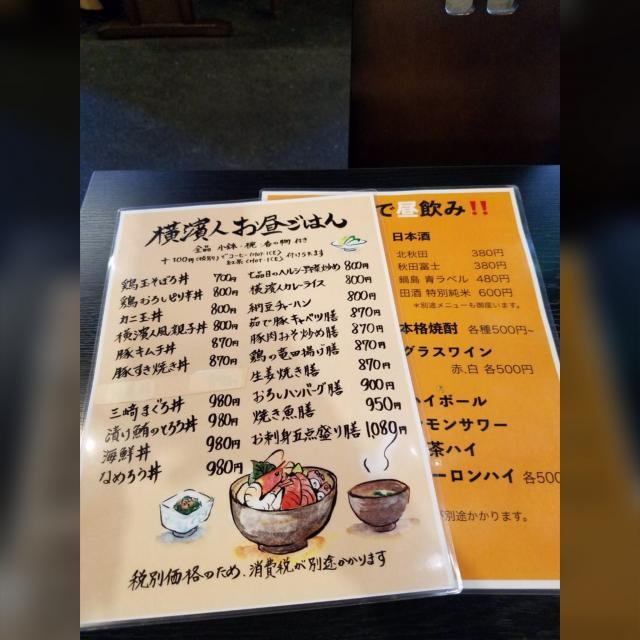 横濱人お昼ごはん
全品 小鉢・椀 香の物 付き
+100円(税別)でコーヒー(HOT・ICE)
紅茶(HOT・ICE) 付けられます
鶏玉そぼろ丼 700円
鶏おろしピリ辛丼 800円
カニ玉丼 800円
横濱人風親子丼 800円
豚キムチ丼 870円
豚すき焼き丼 870円
三崎まぐろ丼 980円
漬け鮪のとろろ丼 980円
海鮮丼 980円
なめろう丼 980円
七品目のヘルシー野菜炒め 800円
横濱人カレーライス 800円
納豆チャーハン 800円
茹で豚キャベツ膳 870円
豚肉おそ炒め膳 870円
鶏の竜田揚げ膳 870円
生姜焼き膳 870円
おろしハンバーグ膳 900円
焼き魚膳 950円
お刺身五点盛り膳 1,080円
税別価格のため、消費税が別途かかります
で昼飲み!!
日本酒
北秋田 380円
秋田富士 380円
鍋島 青ラベル 480円
田酒 特別純米 600円
*別途メニューも御座います。
本格焼酎 各種500円~
グラスワイン
赤、白 各500円
ハイボール
モンサワー
茶ハイ
ーロンハイ 各500
別途かかります。